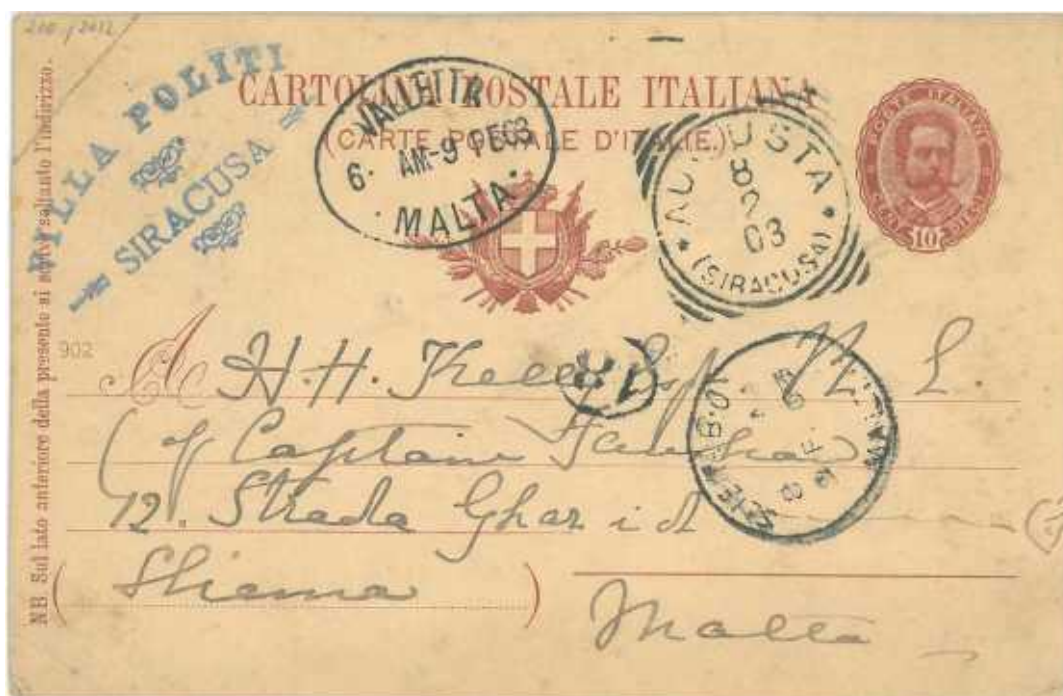 VILLA POLITI
SIRACUSA
CARTOLINA POSTALE ITALIANA
(CARTE POSTALE D'ITALIE.)
VALLETTA
6. AM-9 FE03
MALTA
AUGUSTA
8
2
03
(SIRACUSA)
POSTE ITALIANE
10
NB. Sul lato anteriore della presente si scrive soltanto l'indirizzo.
902
A H. H. Kelly Esq
Captain
12. Strada Ghar id
(Sliema)
Malta